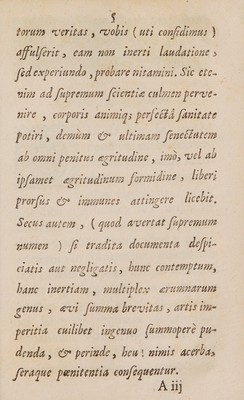 5
torum veritas, vobis (uti confidimus)
affulserit, eam non inerti laudatione,
sed experiundo, probare nitamini. Sic ete-
nim ad supremum scientiæ culmen perve-
nire, corporis animiq; perfectâ sanitate
potiri, demùm & ultimam senectutem
ab omni penitus ægritudine, imò, vel ab
ipsamet ægritudinum formidine, liberi
prorsus & immunes attingere licebit.
Secus autem, (quod avertat supremum
numen) si tradita documenta despi-
ciatis aut negligatis, hunc contemptum,
hanc inertiam, multiplex ærumnarum
genus, ævi summa brevitas, artis im-
peritia cuilibet ingenuo summoperè pu-
denda, & perinde, heu! nimis acerba,
seraque pœnitentia consequentur.
A iij